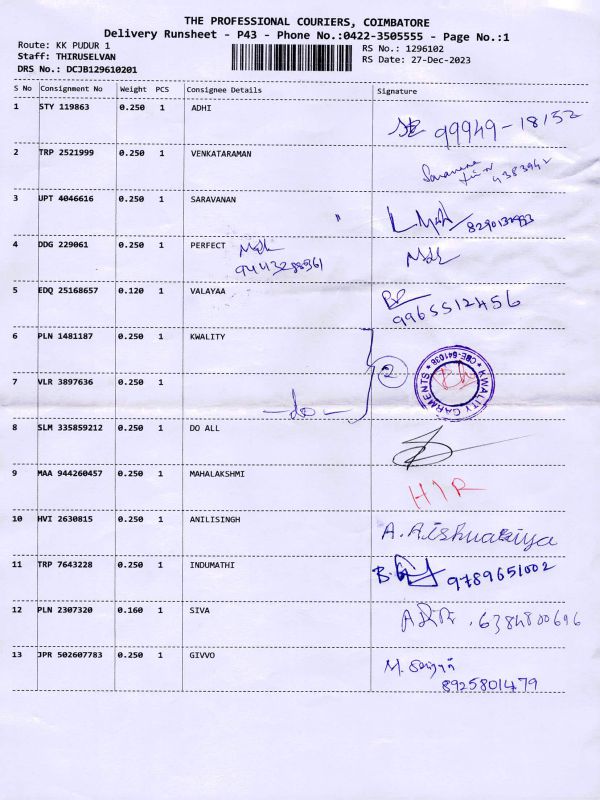 THE PROFESSIONAL COURIERS, COIMBATORE
Delivery Runsheet - P43 - Phone No.:0422-3505555 - Page No.:1
Route: KK PUDUR 1
Staff: THIRUSELVAN
DRS No.: DCJB129610201
RS No.: 1296102
RS Date: 27-Dec-2023
S No Consignment No Weight PCS Consignee Details Signature
1 STY 119863 0.250 1 ADHI 99949-18152
2 TRP 2521999 0.250 1 VENKATARAMAN Saravana
4383942
3 UPT 4046616 0.250 1 SARAVANAN
4 DDG 229061 0.250 1 PERFECT
5 EDQ 25168657 0.120 1 VALAYAA
9965512456
6 PLN 1481187 0.250 1 KWALITY
2
KWALITY GARMENTS ★ CBE-641038 ★
7 VLR 3897636 0.250 1
-do-
8 SLM 335859212 0.250 1 DO ALL
9 MAA 944260457 0.250 1 MAHALAKSHMI HIR
10 HVI 2630815 0.250 1 ANILISINGH A. Aishwariya
11 TRP 7643228 0.250 1 INDUMATHI 9789651002
12 PLN 2307320 0.160 1 SIVA 6384800696
13 JPR 502607783 0.250 1 GIVVO
8925801479